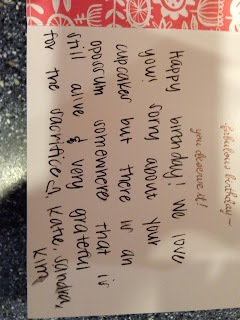 fabulous birthday~
you deserve it!
Happy birthday! We love
you! Sorry about your
cupcakes but there is an
opossum somewhere that is
still alive & very grateful
for the sacrifice. Katie, Sandra,
Kim